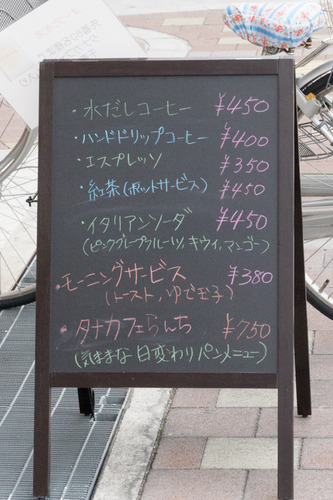 ・水だしコーヒー ¥450
・ハンドドリップコーヒー ¥400
・エスプレッソ ¥350
・紅茶(ポットサービス) ¥450
・イタリアンソーダ ¥450
(ピンクグレープフルーツ、キウイ、マンゴー)
・モーニングサービス ¥380
(トースト、ゆで玉子)
・タナカフェらんち ¥750
(気ままな日変わりパンメニュー)